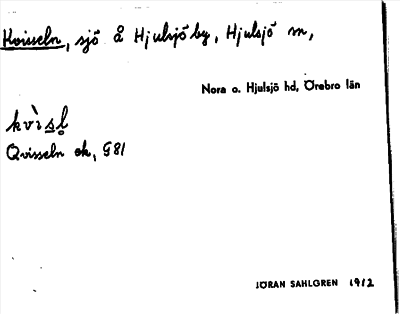 Kvisseln, sjö å Hjulsjö by, Hjulsjö sn,
Nora o. Hjulsjö hd, Örebro län
kvìsl̥
Qvisseln ek, G81
JÖRAN SAHLGREN 1912